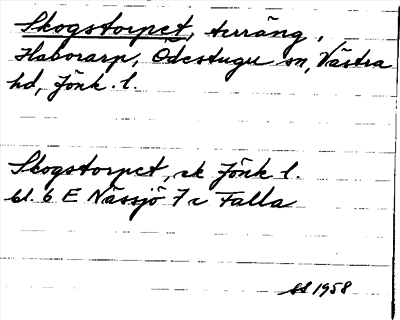 Skogstorpet, terräng,
Haborarp, Ödestugu sn, Västra
hd, Jönk. l.
Skogstorpet, ek Jönk l.
bl. 6 E Nässjö 7 c Falla
SS 1958